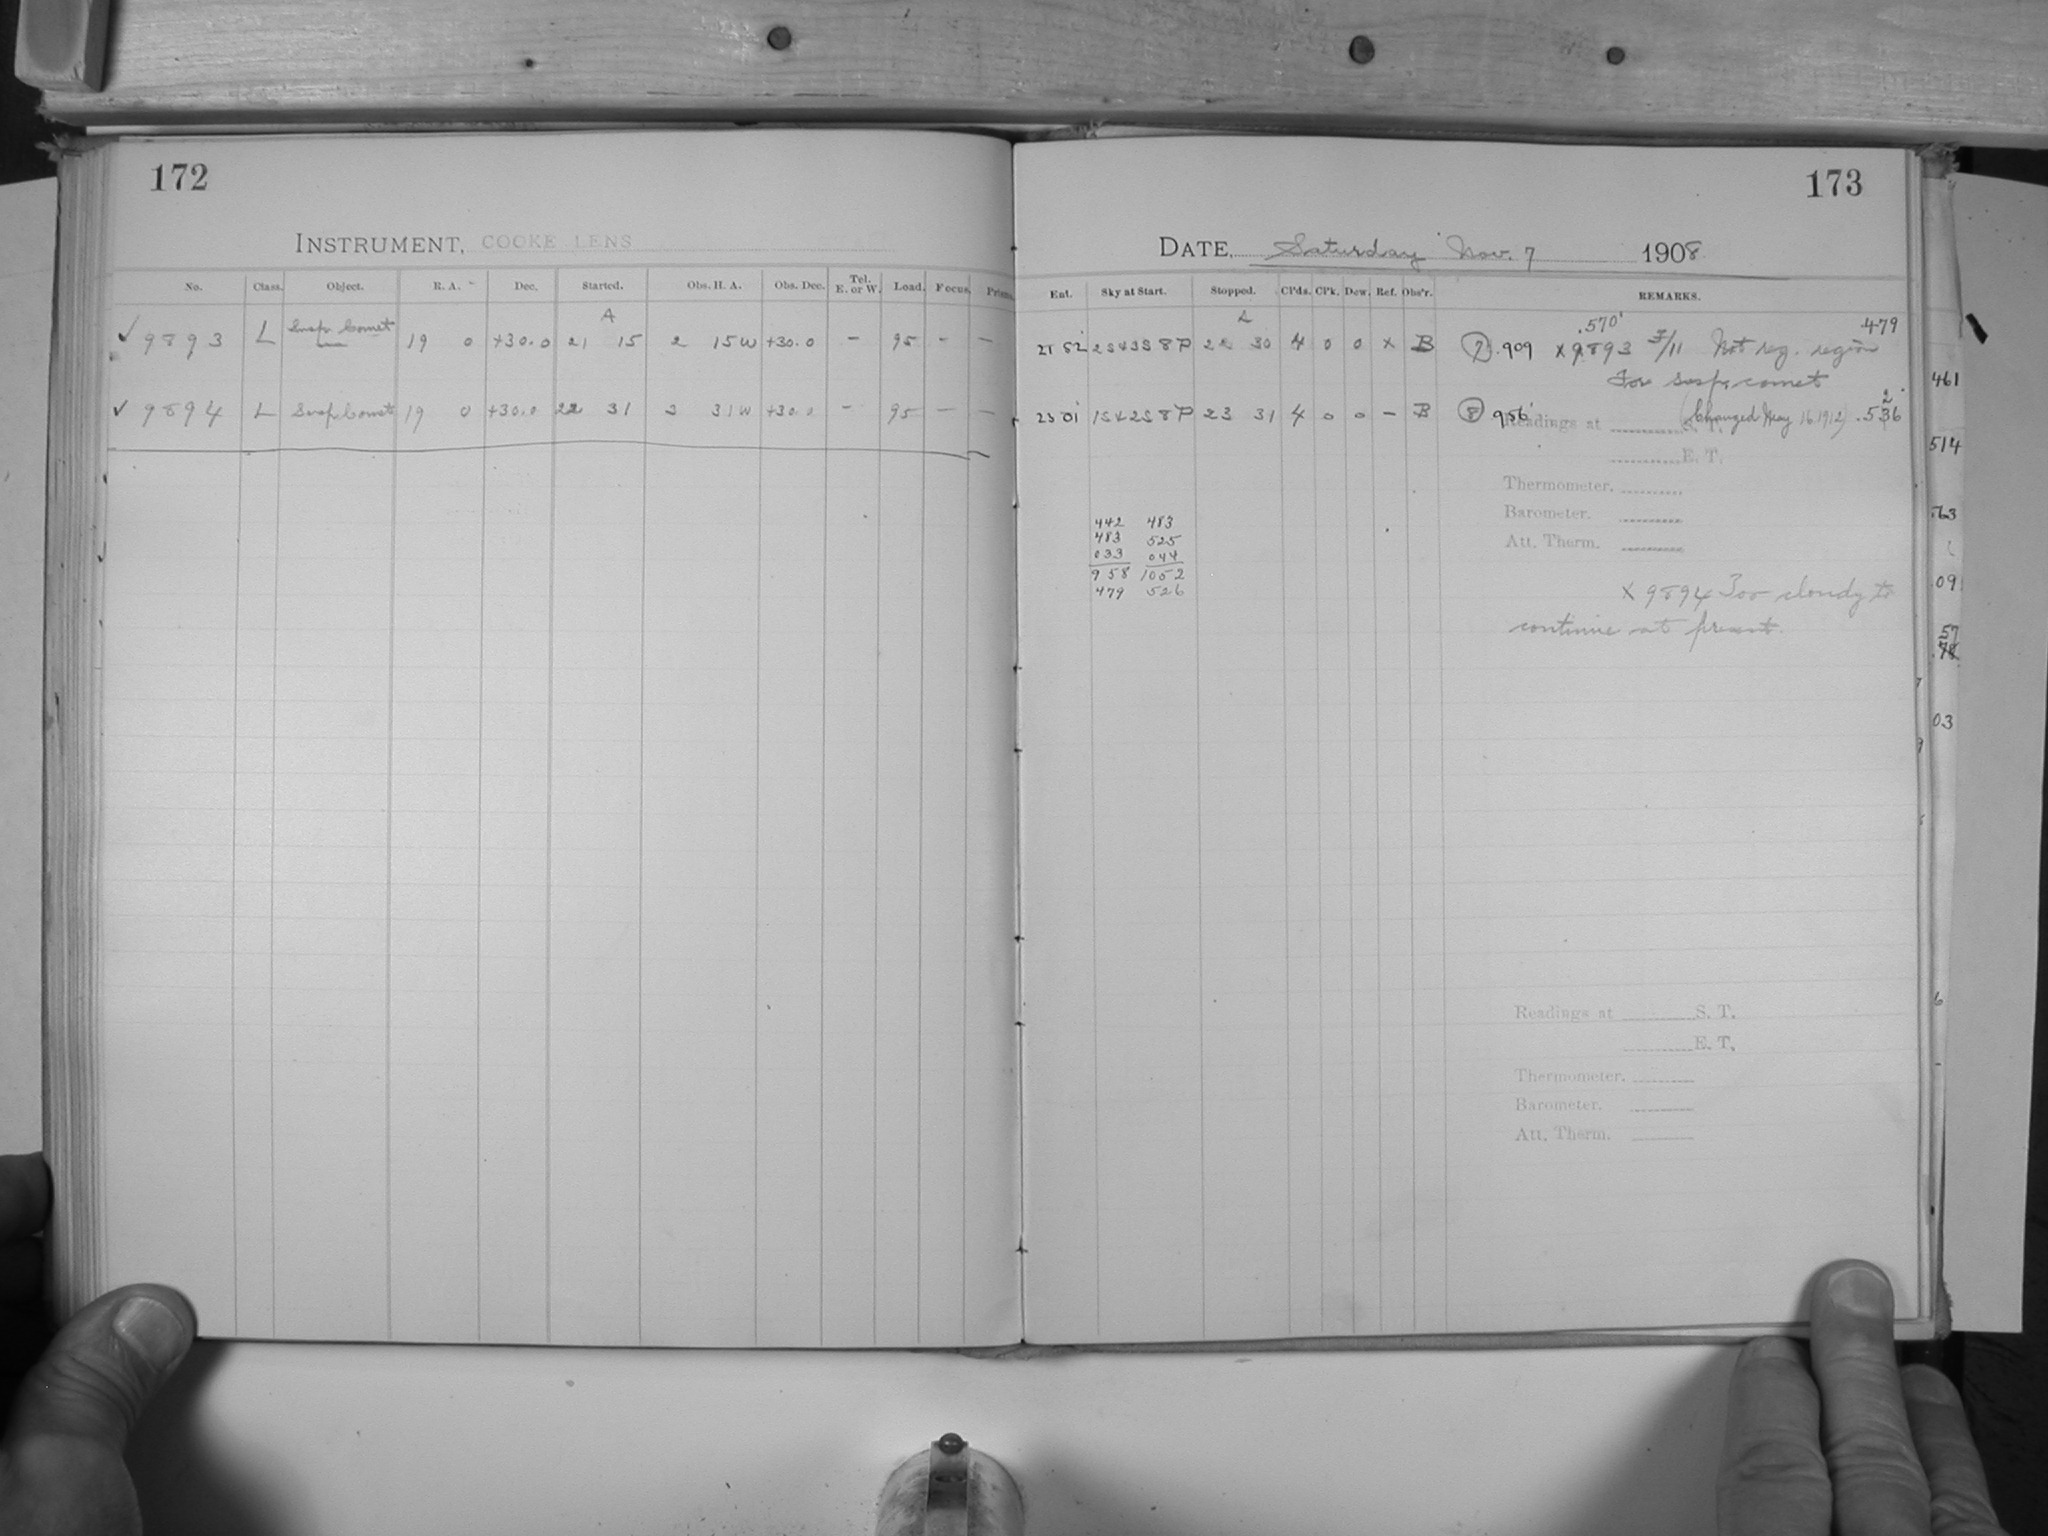 172
173
INSTRUMENT, COOKE LENS
DATE, Saturday Nov. 7 1908
No. Class. Object. R. A. Dec. Started. Obs. H. A. Obs. Dec. Tel. E. or W. Load. Focus. Prisms.
Ent. Sky at Start. Stopped. Cl'ds. Cl'k. Dew. Ref. Obs'r. REMARKS.
✓ 9893 L Susp. Comet 19 0 +30.0 21 15 2 15W +30.0 — 95 — —
A
.570 .479
4 0 0 x B (7) .909 x 9893 Not reg. region
For susp. comet
✓ 9894 L Susp. Comet 19 0 +30.0 22 31 3 31W +30.0 — 95 — —
23 31 4 0 0 — B (8) 956 (Changed May 16 1912) .536
2
Readings at S. T.
E. T.
Thermometer.
Barometer.
Att. Therm.
442 483
483 525
033 044
958 1052
479 526
x 9894 Too cloudy to
continue at present.
Readings at S. T.
E. T.
Thermometer.
Barometer.
Att. Therm.
461
514
63
09
57
03